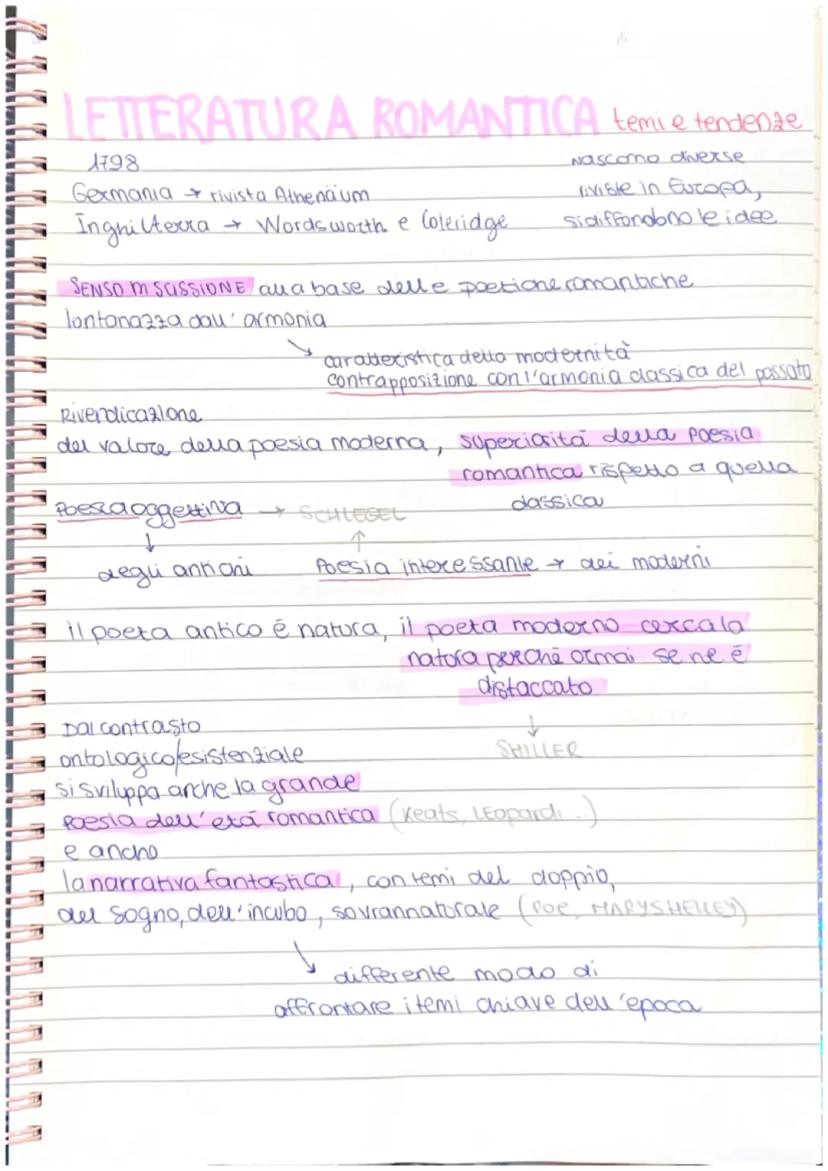 LETTERATURA ROMANTICA temi e tendenze
1798
Germania → rivista Athenäum
Inghilterra → Wordsworth e Coleridge
nascono diverse
riviste in Europa,
si diffondono le idee
SENSO DI SCISSIONE alla base delle poetiche romantiche
lontanazza dall'armonia
↘ caratteristica della modernità
contrapposizione con l'armonia classica del passato
Rivendicazione
del valore della poesia moderna, superiorità della poesia
romantica rispetto a quella
classica
Poesia oggettiva → SCHLEGEL
↓ ↑
degli antichi Poesia interessante → dei moderni
il poeta antico é natura, il poeta moderno cerca la
natura perché ormai se ne é
distaccato
↓
SHILLER
Dal contrasto
ontologico/esistenziale
si sviluppa anche la grande
poesia dell'etá romantica (Keats, Leopardi..)
e anche
la narrativa fantastica, con temi del doppio,
del sogno, dell'incubo, sovrannaturale (POE, MARY SHELLEY)
↘ differente modo di
affrontare i temi chiave dell'epoca